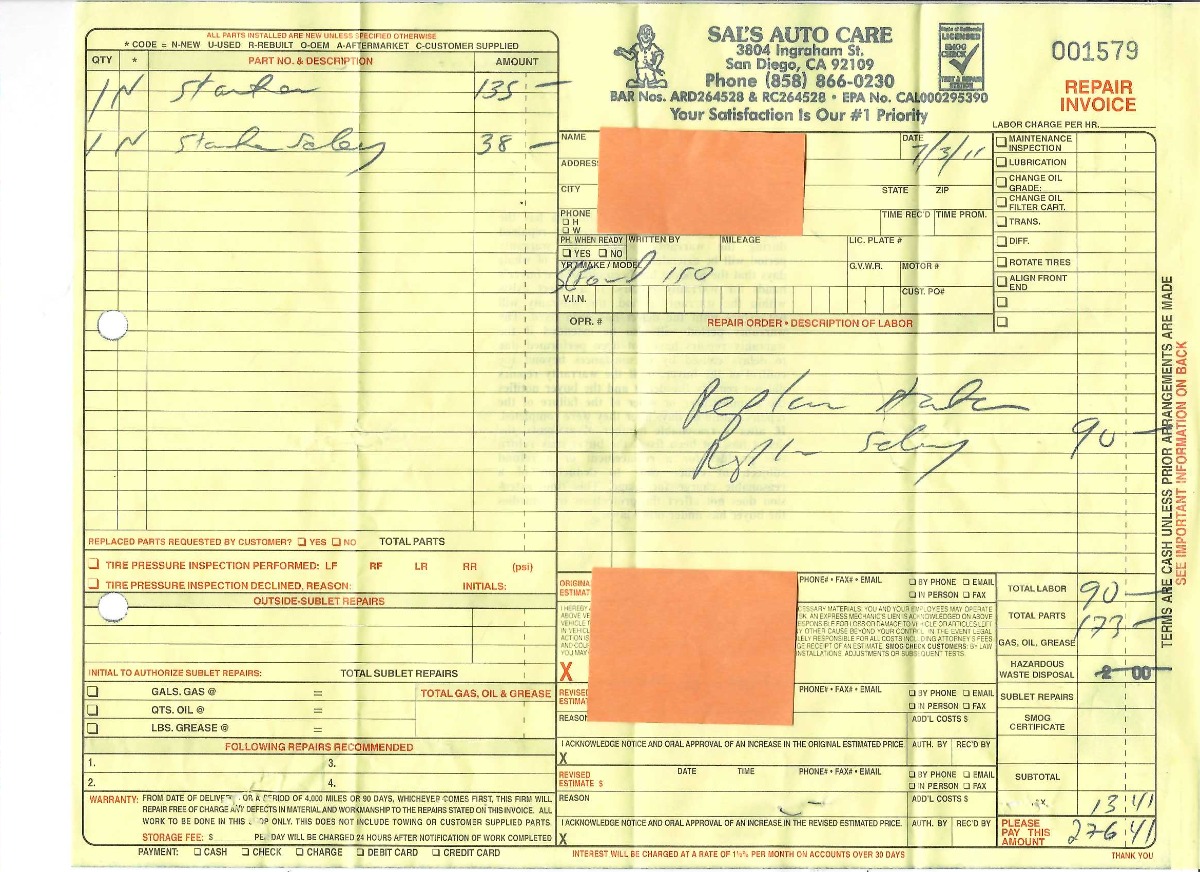 ALL PARTS INSTALLED ARE NEW UNLESS SPECIFIED OTHERWISE
* CODE = N-NEW U-USED R-REBUILT O-OEM A-AFTERMARKET C-CUSTOMER SUPPLIED
QTY * PART NO. & DESCRIPTION AMOUNT
1 N Starter 135 —
1 N Starter 38 —
REPLACED PARTS REQUESTED BY CUSTOMER? YES NO TOTAL PARTS
TIRE PRESSURE INSPECTION PERFORMED: LF RF LR RR (psi)
TIRE PRESSURE INSPECTION DECLINED, REASON: INITIALS:
OUTSIDE-SUBLET REPAIRS
INITIAL TO AUTHORIZE SUBLET REPAIRS: TOTAL SUBLET REPAIRS
GALS. GAS @ = TOTAL GAS, OIL & GREASE
QTS. OIL @ =
LBS. GREASE @ =
FOLLOWING REPAIRS RECOMMENDED
1. 3.
2. 4.
WARRANTY: FROM DATE OF DELIVERY OR A PERIOD OF 4,000 MILES OR 90 DAYS, WHICHEVER COMES FIRST, THIS FIRM WILL
REPAIR FREE OF CHARGE ANY DEFECTS IN MATERIAL AND WORKMANSHIP TO THE REPAIRS STATED ON THIS INVOICE. ALL
WORK TO BE DONE IN THIS OP ONLY. THIS DOES NOT INCLUDE TOWING OR CUSTOMER SUPPLIED PARTS.
STORAGE FEE: $ PE DAY WILL BE CHARGED 24 HOURS AFTER NOTIFICATION OF WORK COMPLETED
PAYMENT: CASH CHECK CHARGE DEBIT CARD CREDIT CARD
SAL'S AUTO CARE
3804 Ingraham St.
San Diego, CA 92109
Phone (858) 866-0230
BAR Nos. ARD264528 & RC264528 • EPA No. CAL000295390
Your Satisfaction Is Our #1 Priority
State of California
LICENSED
SMOG
CHECK
TEST & REPAIR
STATION
001579
REPAIR
INVOICE
LABOR CHARGE PER HR.
NAME DATE 7/3/11
ADDRES
CITY STATE ZIP
PHONE TIME REC'D TIME PROM.
H
W
PH. WHEN READY WRITTEN BY MILEAGE LIC. PLATE #
YES NO
YR / MAKE / MODEL 150 G.V.W.R. MOTOR #
V.I.N. CUST. PO#
MAINTENANCE
INSPECTION
LUBRICATION
CHANGE OIL
GRADE:
CHANGE OIL
FILTER CART.
TRANS.
DIFF.
ROTATE TIRES
ALIGN FRONT
END
OPR. # REPAIR ORDER • DESCRIPTION OF LABOR
Replace Starter
Replace 90 —
ORIGINA
ESTIMAT PHONE# • FAX# • EMAIL BY PHONE EMAIL
IN PERSON FAX
X
REVISED
ESTIMA PHONE# • FAX# • EMAIL BY PHONE EMAIL
IN PERSON FAX
REASO ADD'L COSTS $
I ACKNOWLEDGE NOTICE AND ORAL APPROVAL OF AN INCREASE IN THE ORIGINAL ESTIMATED PRICE. AUTH. BY REC'D BY
X
REVISED
ESTIMATE $ DATE TIME PHONE# • FAX# • EMAIL BY PHONE EMAIL
IN PERSON FAX
REASON ADD'L COSTS $
I ACKNOWLEDGE NOTICE AND ORAL APPROVAL OF AN INCREASE IN THE REVISED ESTIMATED PRICE. AUTH. BY REC'D BY
X
INTEREST WILL BE CHARGED AT A RATE OF 1½% PER MONTH ON ACCOUNTS OVER 30 DAYS
TOTAL LABOR 90 —
TOTAL PARTS 173 —
GAS, OIL, GREASE
HAZARDOUS
WASTE DISPOSAL 2 00
SUBLET REPAIRS
SMOG
CERTIFICATE
SUBTOTAL
13 41
PLEASE
PAY THIS
AMOUNT 276 41
THANK YOU
TERMS ARE CASH UNLESS PRIOR ARRANGEMENTS ARE MADE
SEE IMPORTANT INFORMATION ON BACK